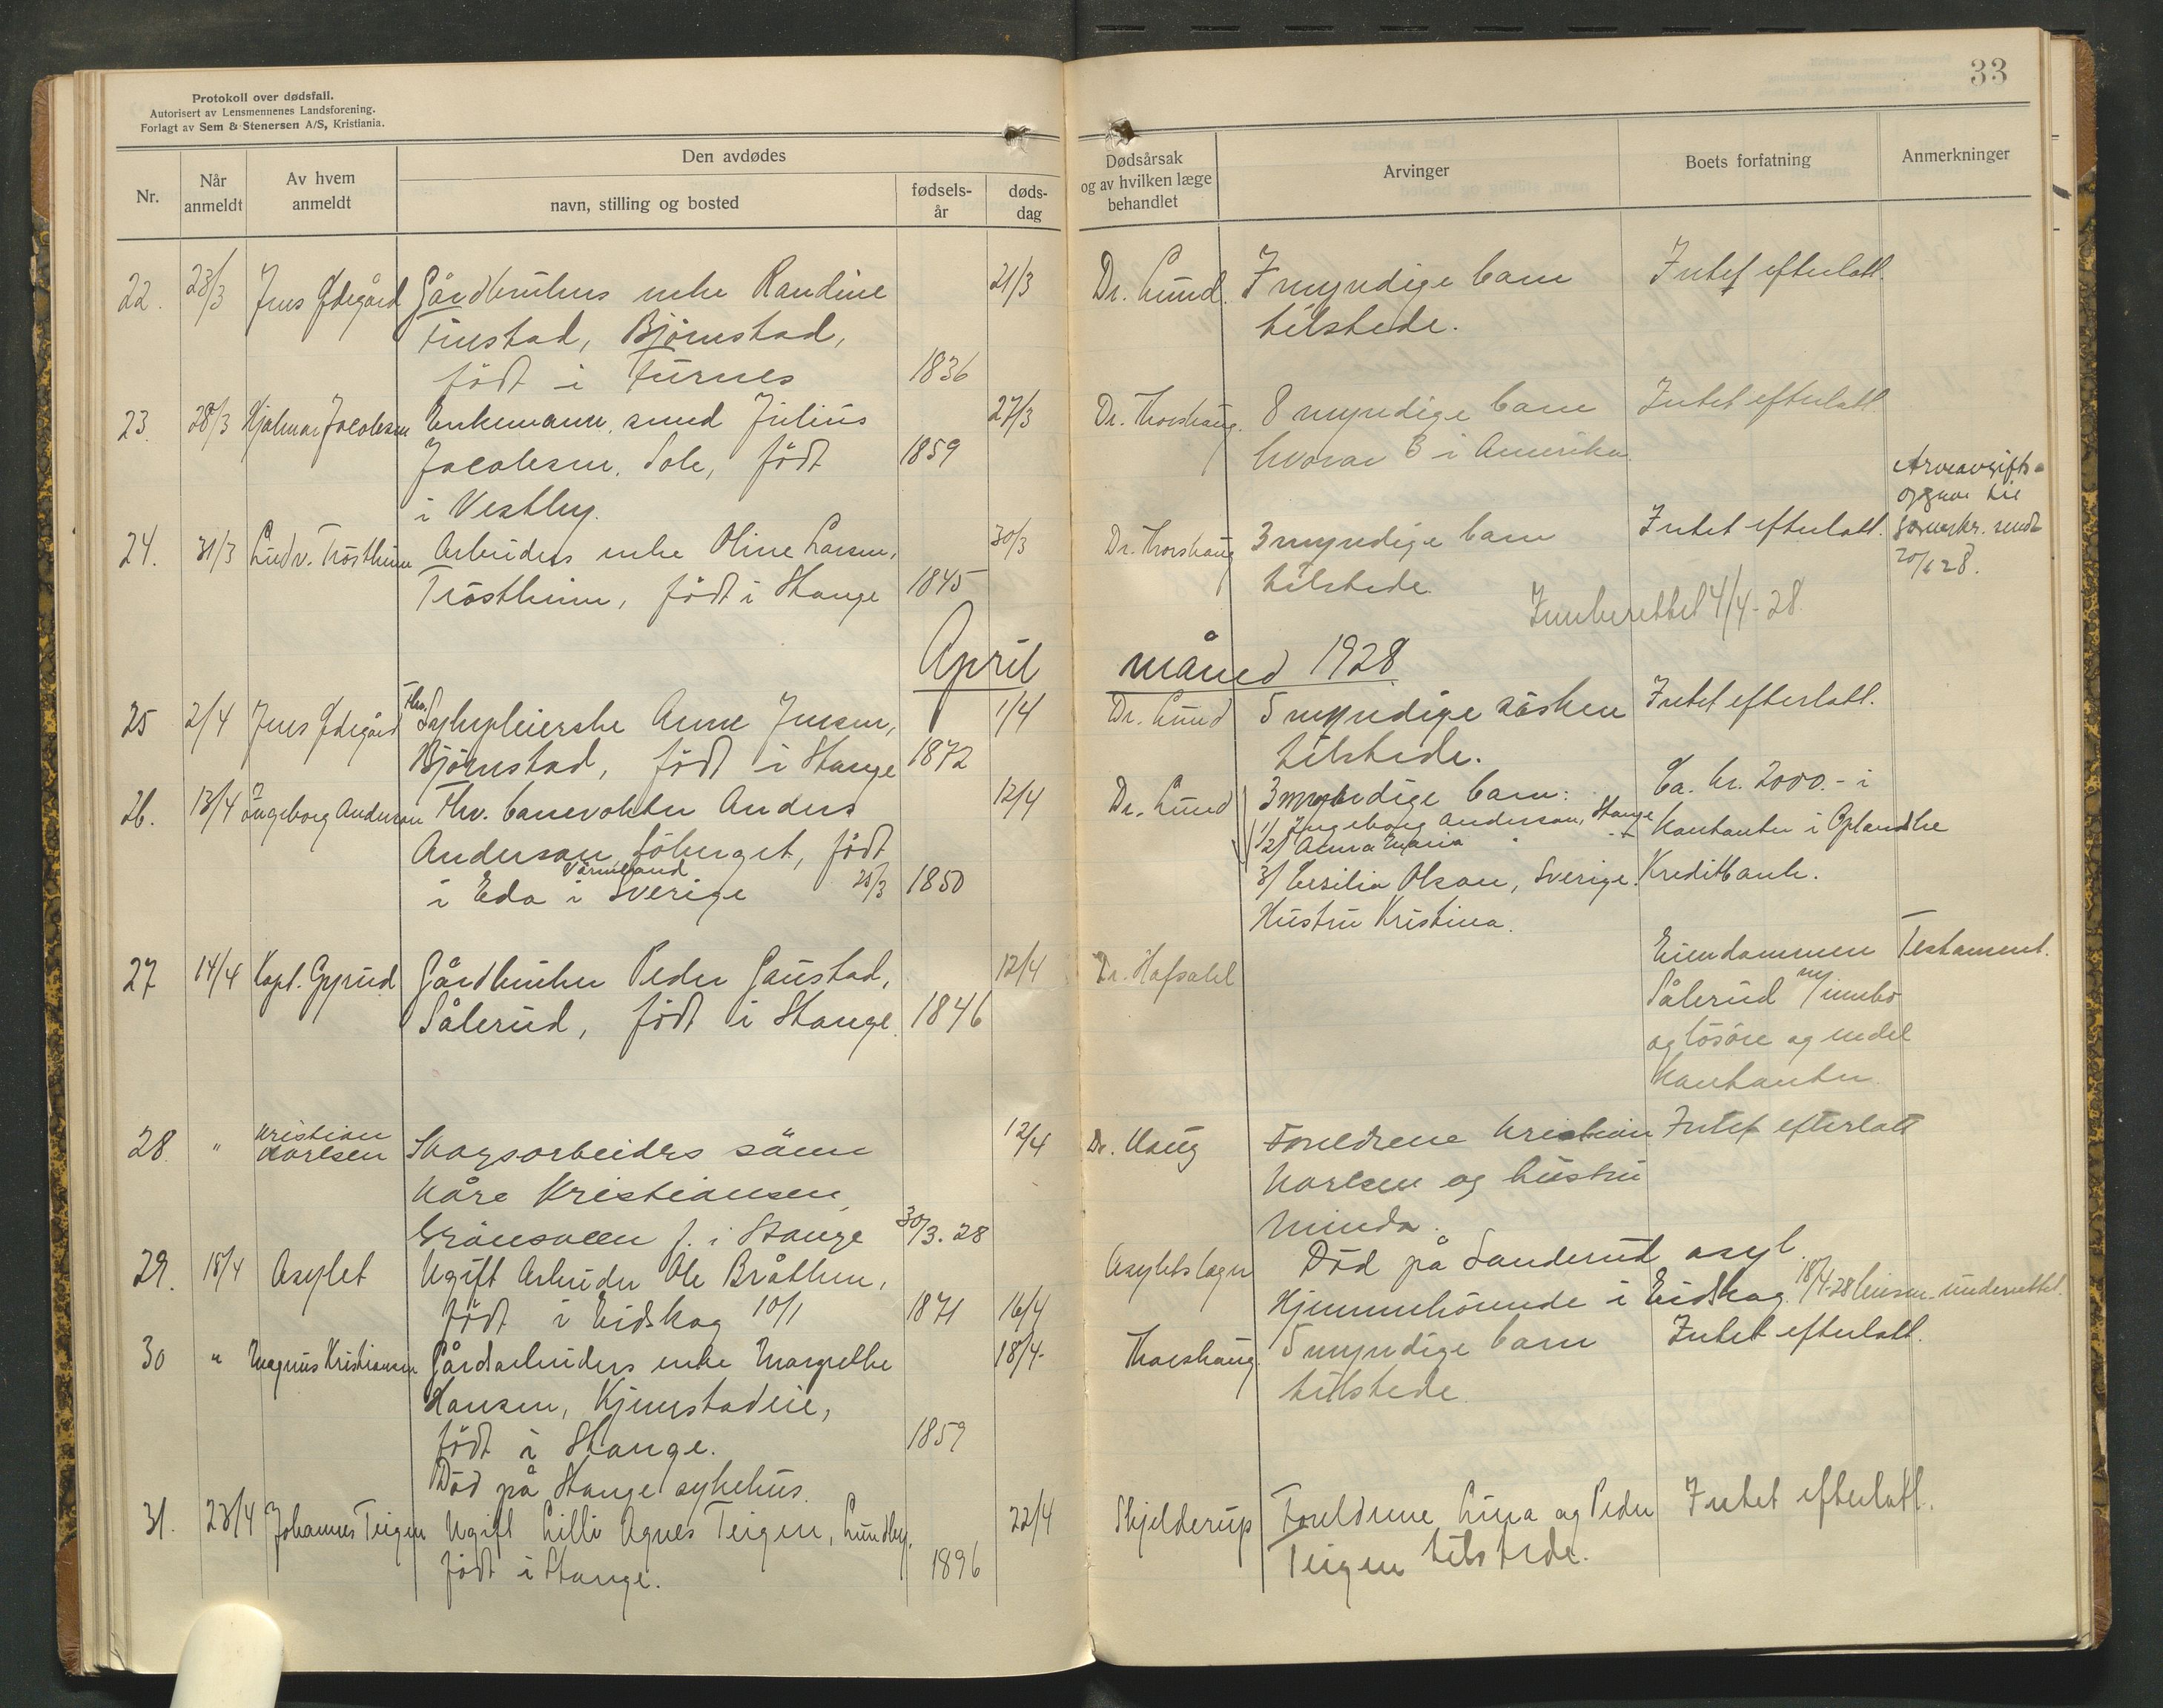 Protokoll over dødsfall.
Autorisert av Lensmennenes Landsforening.
Forlagt av Sem & Stenersen A/S, Kristiania.
33
Nr.
Når anmeldt
Av hvem anmeldt
Den avdødes
navn, stilling og bosted
fødsels-år
døds-dag
Dødsårsak og av hvilken læge behandlet
Arvinger
Boets forfatning
Anmerkninger
22. 23/3 Jens Ødegård Gårdbrukers enke Randine 21/3 Dr. Lund. 7 myndige barn Intet efterlatt.
Finstad, Björnstad, tilstede.
född i Furnes 1836
23. 28/3 Hjalmar Jacobsen Enkemann, smed Julius 27/3 Dr. Thorshaug. 8 myndige barn Intet efterlatt.
Jacobsen, Sole, född 1859 hvorav 3 i Amerika.
i Vestby.
24. 31/3 Ludv. Tröstheim Arbeiders enke Oline Larsen, 30/3 Dr. Thorshaug 3 myndige barn Intet efterlatt. Arveavgifts-
oppgave til
sorenskr. sendt
20/6 28.
Tröstheim, född i Stange 1845 tilstede.
Innberettet 4/4-28.
April måned 1928
25 2/4 Jens Ødegård Fhv. Sykepleierske Anne Jensen, 1/4 Dr. Lund 5 myndige søsken Intet efterlatt.
Björnstad, född i Stange 1872 tilstede.
26. 13/4 Ingeborg Anderson Fhv. banevokter Anders 12/4 Dr. Lund 3 myndige barn: Ca. kr. 2000.- i
1/ Ingeborg Anderson, Stange kontanter i Oplandske
Anderson, född 2/ Anna Maria " -"-
Värmland
i Eda i Sverige 25/3 1850 3/ Cesilia Olson, Sverige. Kreditbank.
Hustru Kristina.
27 14/4 Kapt. Gyrud Gårdbruker Peder Gaustad, 12/4 Dr. Hafsahl Eiendommen Testament.
Sålerud, född i Stange. 1846 Sålerud m/ innbo
og lösöre og endel
kontanter.
28. " Kristian Karlsen Skogsarbeiders sönn 12/4 Dr. Haug Foreldrene Kristian Intet efterlatt
Kåre Kristiansen, Karlsen og hustru
Grönsveen f. i Stange 30/3. 28 Minda.
29. 18/4 Asylet Ugift Arbeider Ole Bråthen, Asylets læge Död på Sanderud asyl.
född i Eidskog 10/1 1871 16/4 Hjemmehörende i Eidskog. 18/4-28 lensm. underrettet.
30 " Magnus Kristiansen Gårdarbeiders enke Margrethe 18/4- Thorshaug. 5 myndige barn Intet efterlatt.
Hansen, Kjemstadeie, tilstede.
född i Stange. 1859
Död på Stange sykehus.
31. 23/4 Johannes Teigen Ugift Lilli Agnes Teigen, Lundby. 22/4 Skjelderup Foreldrene Lina og Peder Intet efterlatt.
född i Stange. 1896 Teigen tilstede.